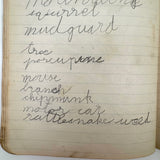 squirrel
mud guard
tree
porcupine
mouse
branch
chipmunk
motor car
rattlesnake weed